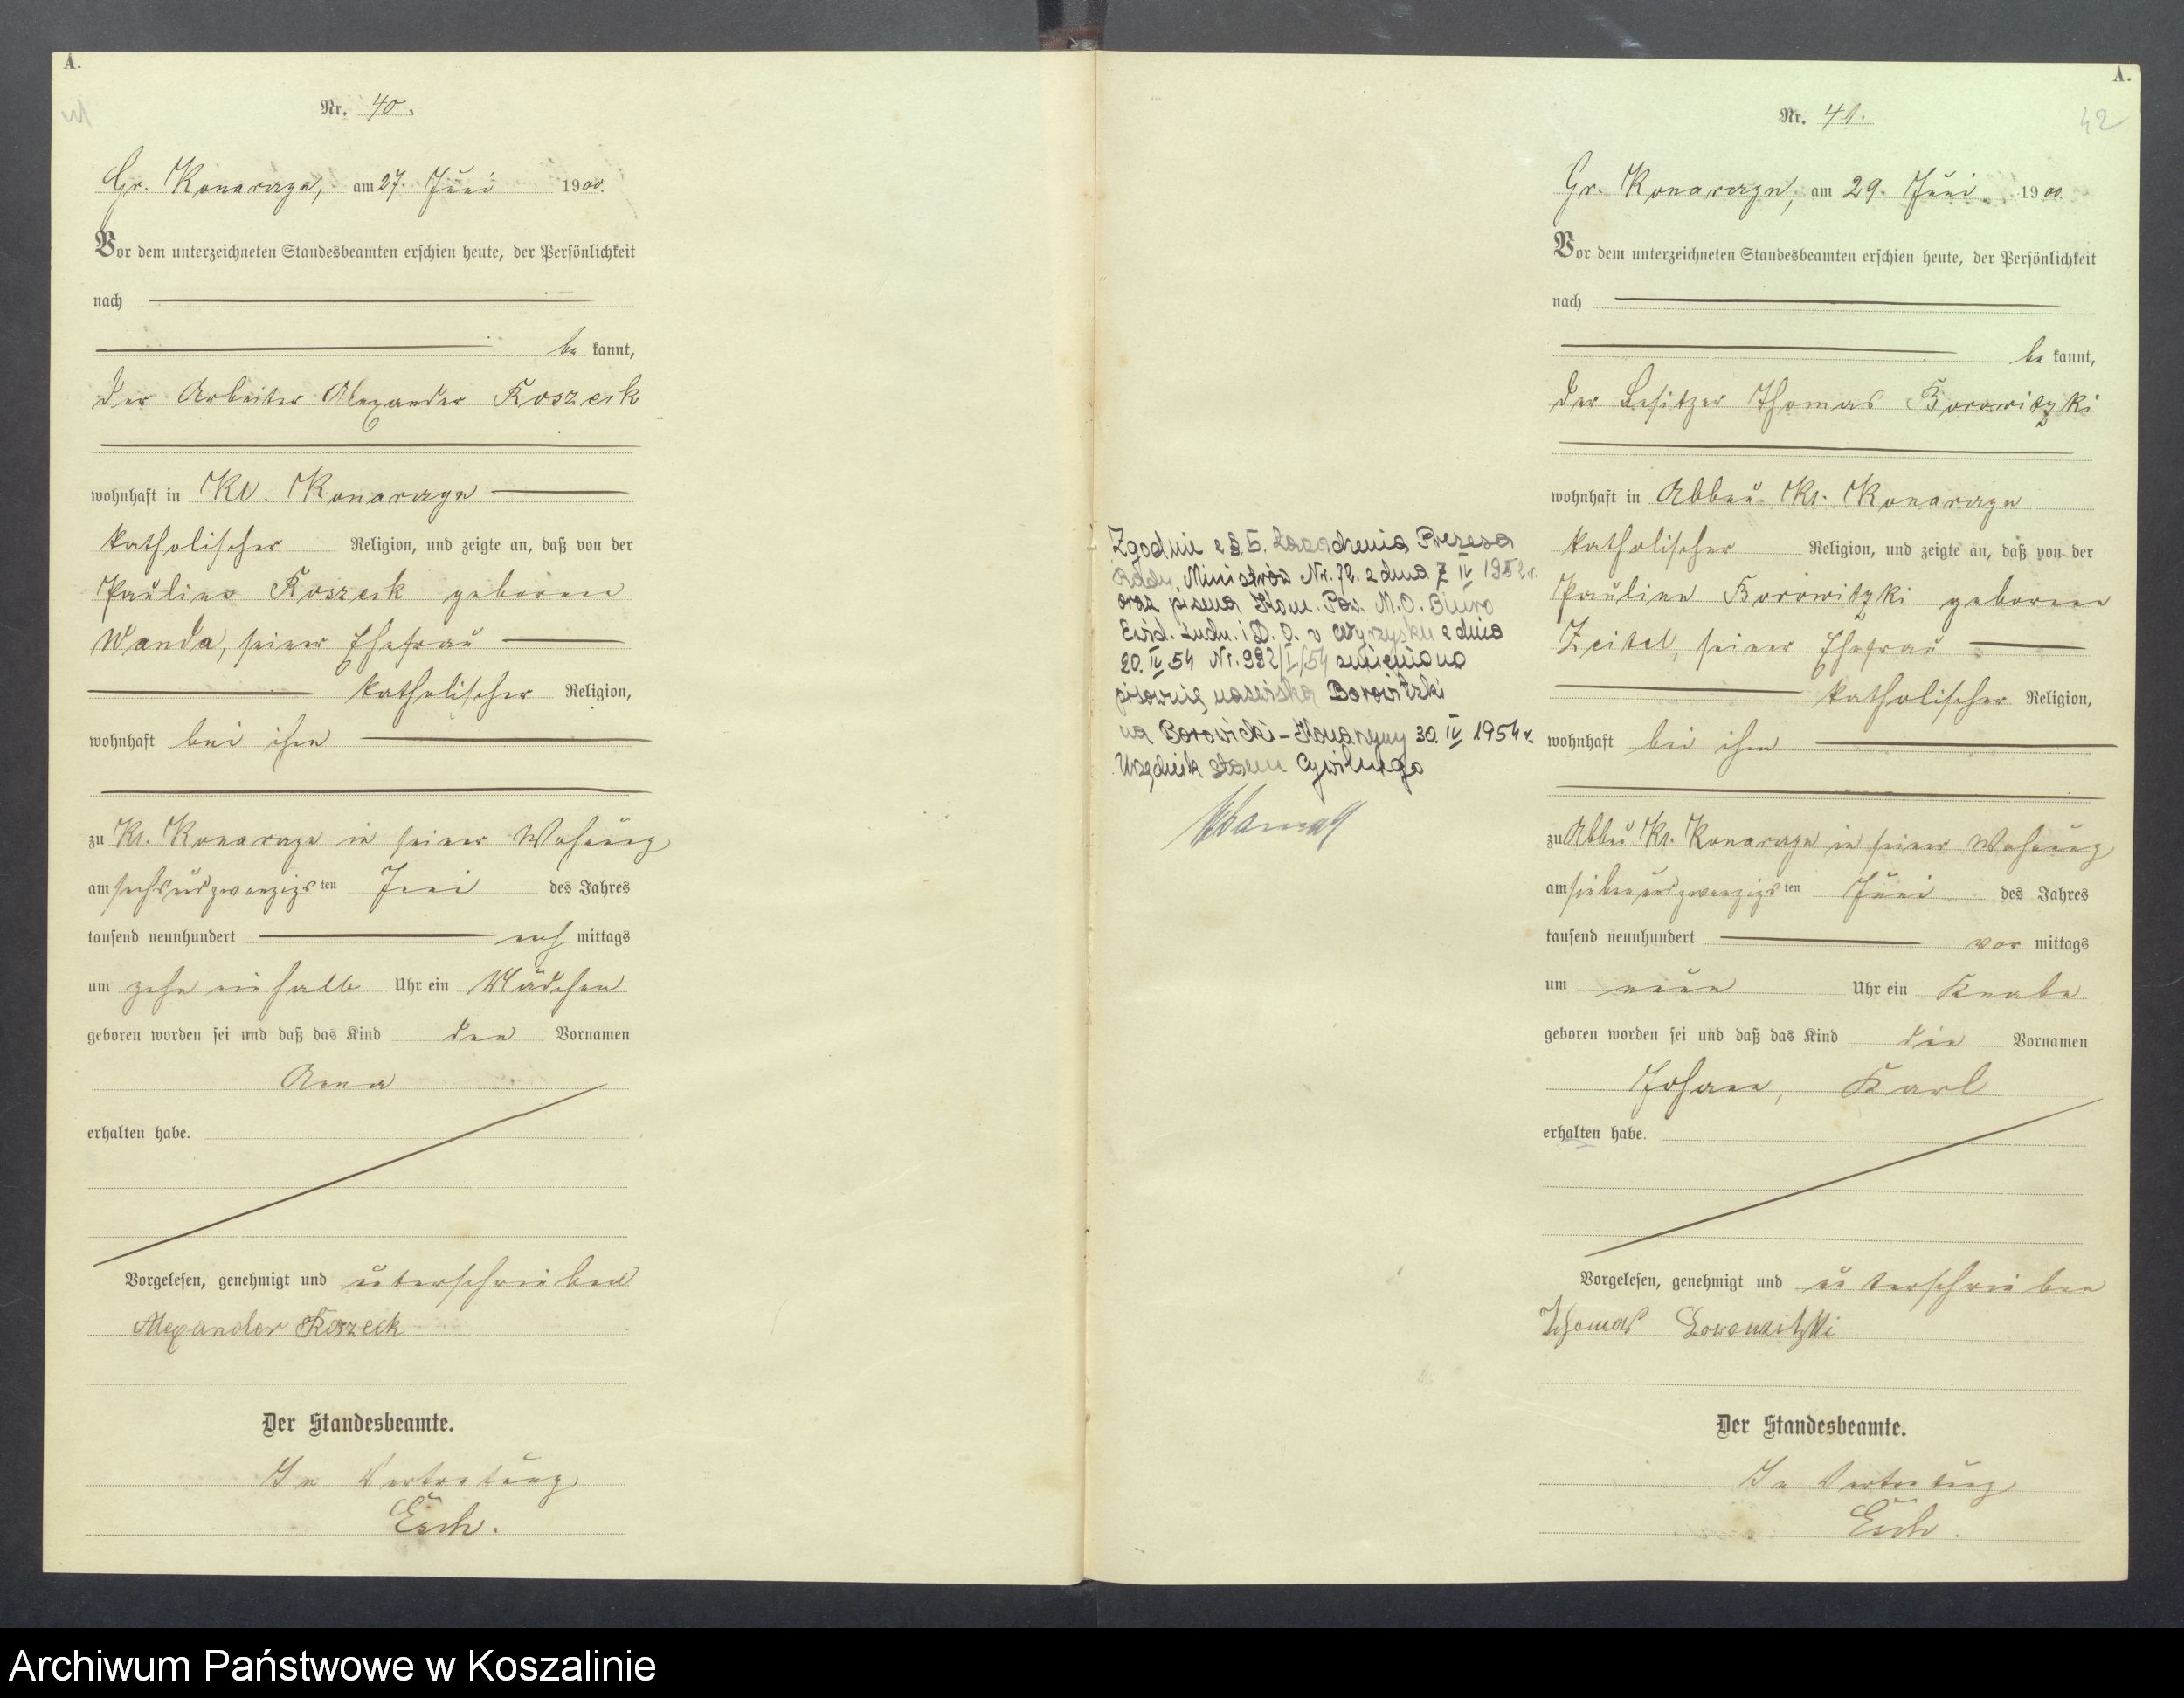 A.
Nr. 40.
Gr. Konarczyn, am 27. Juni 1900.
Vor dem unterzeichneten Standesbeamten erschien heute, der Persönlichkeit
nach
be kannt,
der Arbeiter Alexander Koszeck
wohnhaft in Kl. Konarczyn
katholischer Religion, und zeigte an, daß von der
Pauline Koszeck geborene
Wanda, seiner Ehefrau
katholischer Religion,
wohnhaft bei ihm
zu Kl. Konarczyn in seiner Wohnung
am sechsundzwanzigs ten Juni des Jahres
tausend neunhundert nach mittags
um zehn ein halb Uhr ein Mädchen
geboren worden sei und daß das Kind den Vornamen
Anna
erhalten habe.
Vorgelesen, genehmigt und unterschrieben
Alexander Koszeck
Der Standesbeamte.
In Vertretung
Esch.
A.
42
Nr. 41.
Gr. Konarczyn, am 29. Juni 1900.
Vor dem unterzeichneten Standesbeamten erschien heute, der Persönlichkeit
nach
be kannt,
der Besitzer Thomas Borowitzki
wohnhaft in Abbau Kl. Konarczyn
katholischer Religion, und zeigte an, daß von der
Pauline Borowitzki geborene
Zeitel, seiner Ehefrau
katholischer Religion,
wohnhaft bei ihm
zu Abbau Kl. Konarczyn in seiner Wohnung
am siebenundzwanzigs ten Juni des Jahres
tausend neunhundert vor mittags
um neun Uhr ein Knabe
geboren worden sei und daß das Kind die Vornamen
Johann, Karl
erhalten habe.
Vorgelesen, genehmigt und unterschrieben
Thomas Borowitzki
Der Standesbeamte.
In Vertretung
Esch.
Zgodnie z § 5. Prezesa
Rady Ministrów Nr. 72. z dnia 7 IV 1952 r.
oraz pisma Kom. Pow. M.O. Biuro
Ewid. Ludn. i D.O. w Wyrzysku z dnia
20. IV 54 Nr. 992/I/54 zmieniono
pisownię nazwiska Borowitzki
na Borowicki – Konarzyny 30. IV 1954 r.
Urzędnik stanu Cywilnego
Archiwum Państwowe w Koszalinie